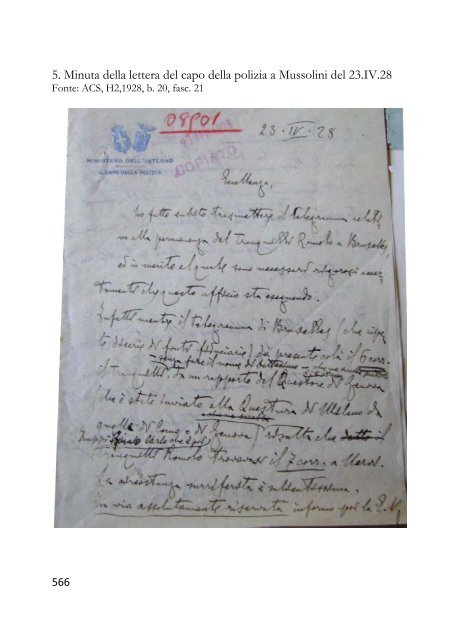 5. Minuta della lettera del capo della polizia a Mussolini del 23.IV.28
Fonte: ACS, H2,1928, b. 20, fasc. 21
08901
23 - IV - 28
MINISTERO DELL'INTERNO
IL CAPO DELLA POLIZIA
Eccellenza,
ho fatto subito trasmettere il telegramma relati-
vo alla permanenza del Tranquilli Romolo a Bruxelles,
ed in merito al quale sono necessari rigorosi accer-
tamenti che questo ufficio sta eseguendo.
Infatti mentre il telegramma di Bruxelles (che
di fonte fiduciaria) dà presente colà il 6 corr.
il Tranquilli, da un rapporto del Questore di Genova
(che è stato inviato alla Questura di Milano da
quella di Como e di Genova) risulta che detto il
Tranquilli Romolo trovavasi il 7 corr. a
La circostanza surriferita è
In via assolutamente riservata informo poi la E.V.
566